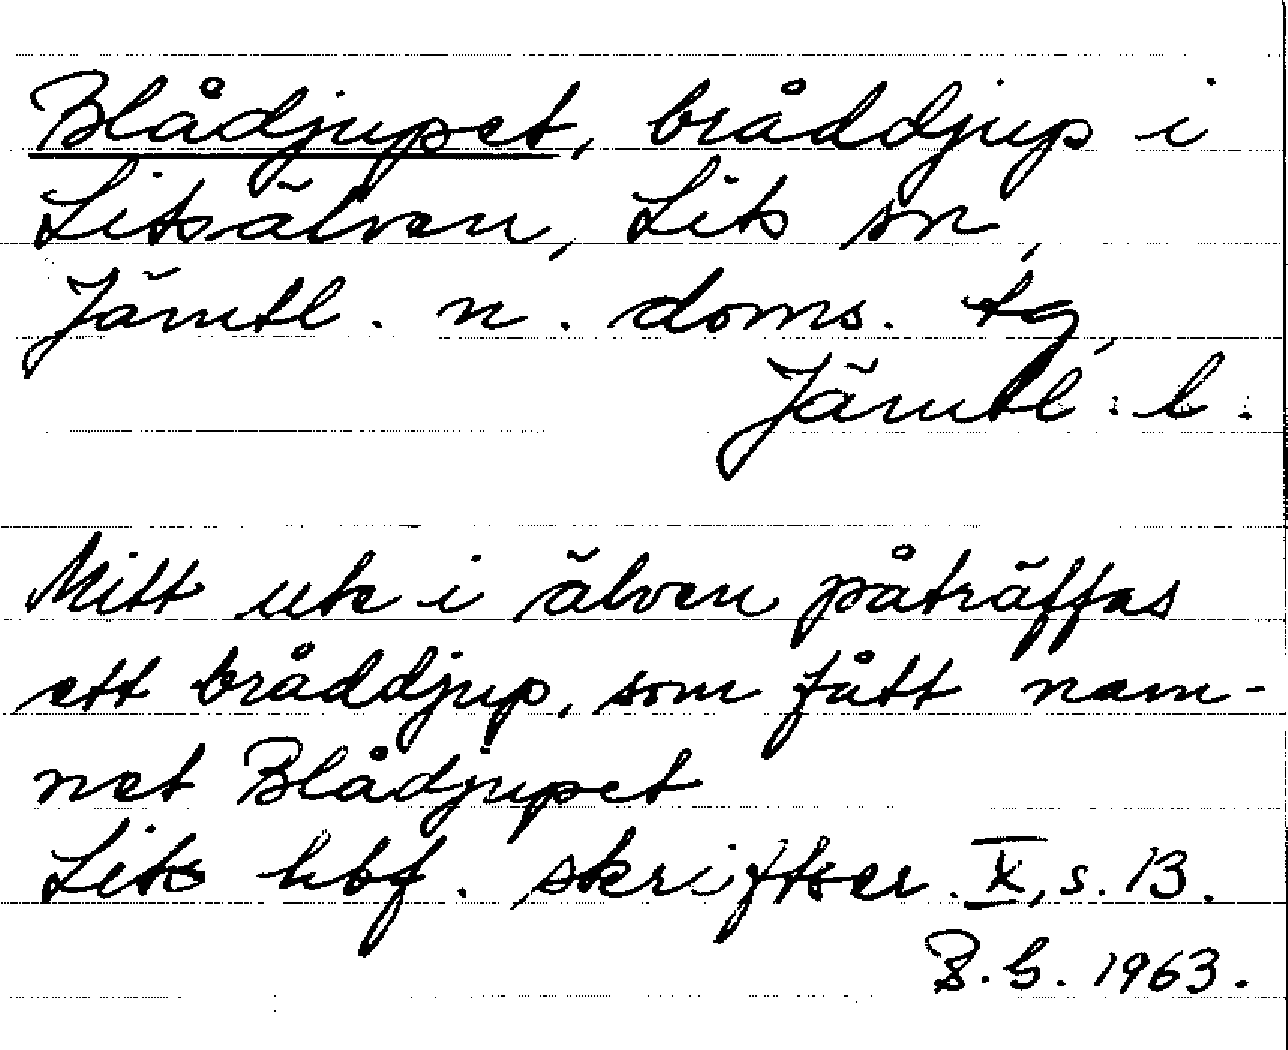 Blådjupet, bråddjup i
Litsälven, Lits sn,
Jämtl. n. doms. tg,
Jämtl. l.
Mitt ute i älven påträffas
ett bråddjup, som fått nam-
net Blådjupet
Lits hbf. skriftser. X, s. 13.
B.G. 1963.